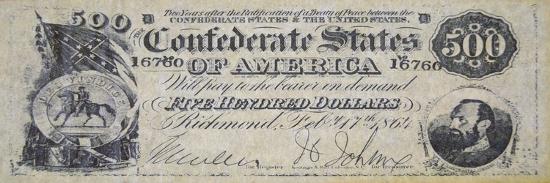 500 Two Years after the Ratification of a Treaty of Peace between the
CONFEDERATE STATES & THE UNITED STATES,
The Confederate States
500
16760 OF AMERICA 16760
Will pay to the bearer on demand
FIVE HUNDRED DOLLARS
Richmond, Feb 17th 1864
for Register for Treasurer